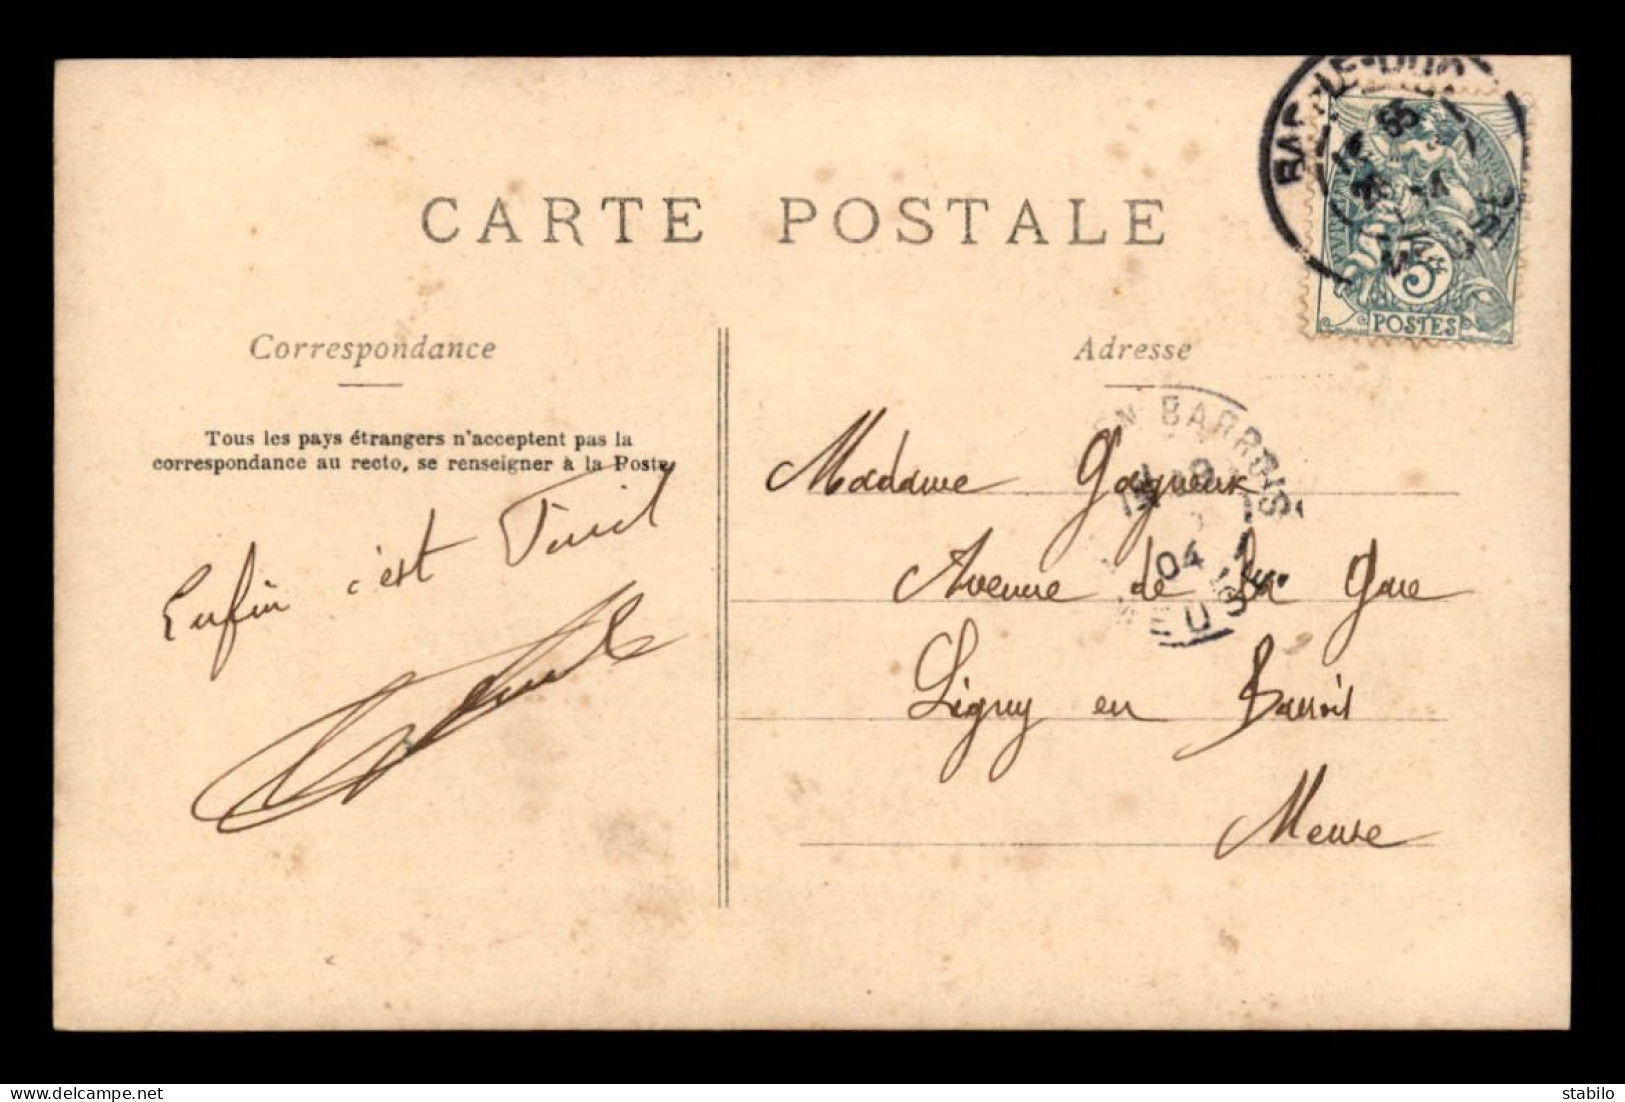 CARTE POSTALE
BAR-LE-DUC
5c
POSTES
Correspondance
Adresse
Tous les pays étrangers n'acceptent pas la
correspondance au recto, se renseigner à la Poste
Enfin c'est
EN BARROIS
04
MEUSE
Madame Gagneux
Avenue de la Gare
Ligny en Barrois
Meuse
stabilo